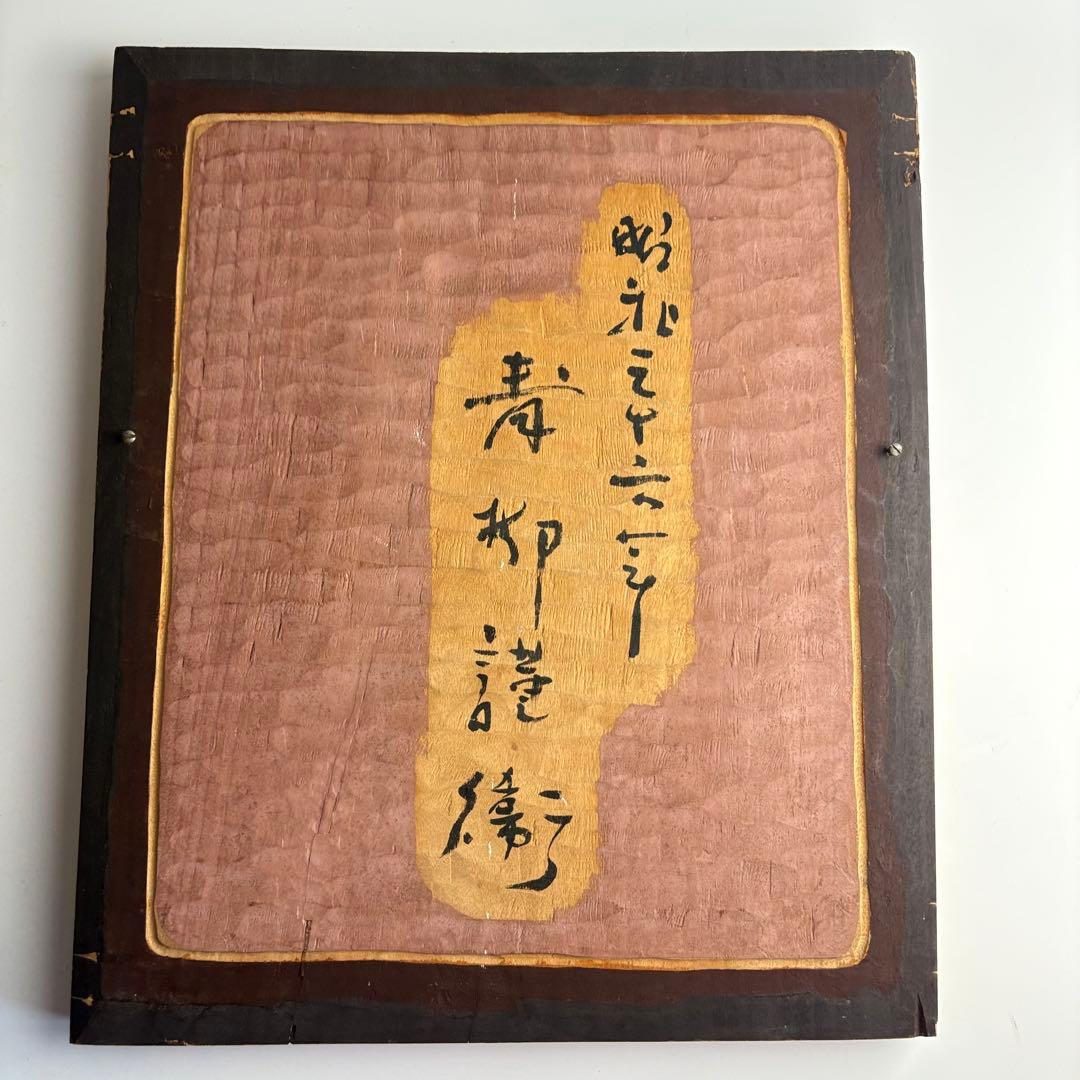 昭和三十六年
青柳謹衛